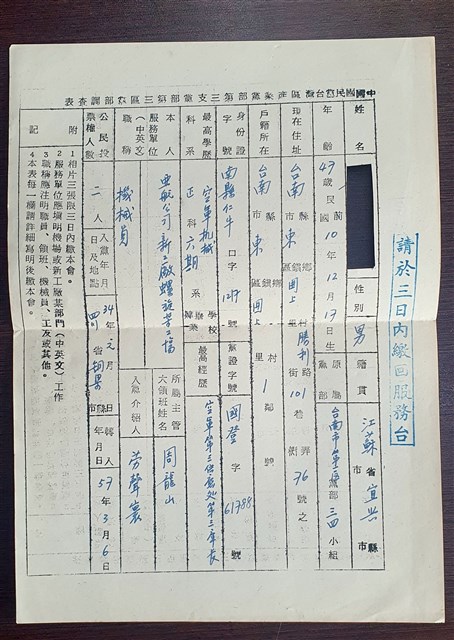 中國國民黨台灣區產業黨部第三支黨部第三區黨部調查表
請於三日內繳回服務台
姓名 性別 男 籍貫 江蘇省市 宜興縣市
年齡 49歲 民國前 10年12月13日生 原屬黨部 台南市 黨部 三四小組
現在住址 台南縣市 東鄉鎮區 村里 勝利路街 101巷弄 76號之
戶籍所在 台南縣市 東鄉鎮區 村里 1鄰 號
身份證字號 南縣仁牛字 口 1217號 黨證字號 國登字61788號
最高學歷科系 空軍機械學校 正科六期 系 畢業肄業 最高經歷 空軍第三供應處第三庫長
本人服務單位(中英文) 亞航公司新工廠螺旋槳工場 所屬主管大領班姓名 周龍山
職稱 機械員 入黨介紹人 勞聲寰
公民投票權人數 二人 入黨年月日及地點 34年元月 日 四川省銅梁縣市 轉入年月日 57年3月6日
附記
1 相片三張限三日內繳本會。
2 服務單位應填明機場或新工廠某部門(中英文)工作
3 職稱應注明職員、領班、機械員、工友或其他。
4 本表每一欄請詳細寫明後繳本會。